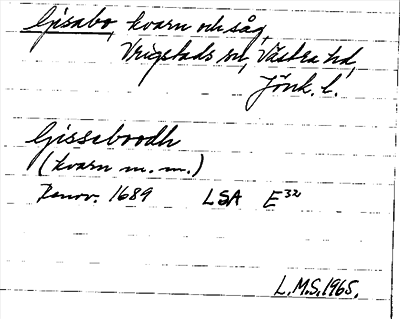 Gisabo, kvarn och såg,
Vrigstads sn, Västra hd,
Jönk. l.
Gissaboodh
(kvarn m. m.)
Renov. 1689 LSA E32
L.M.S. 1965.